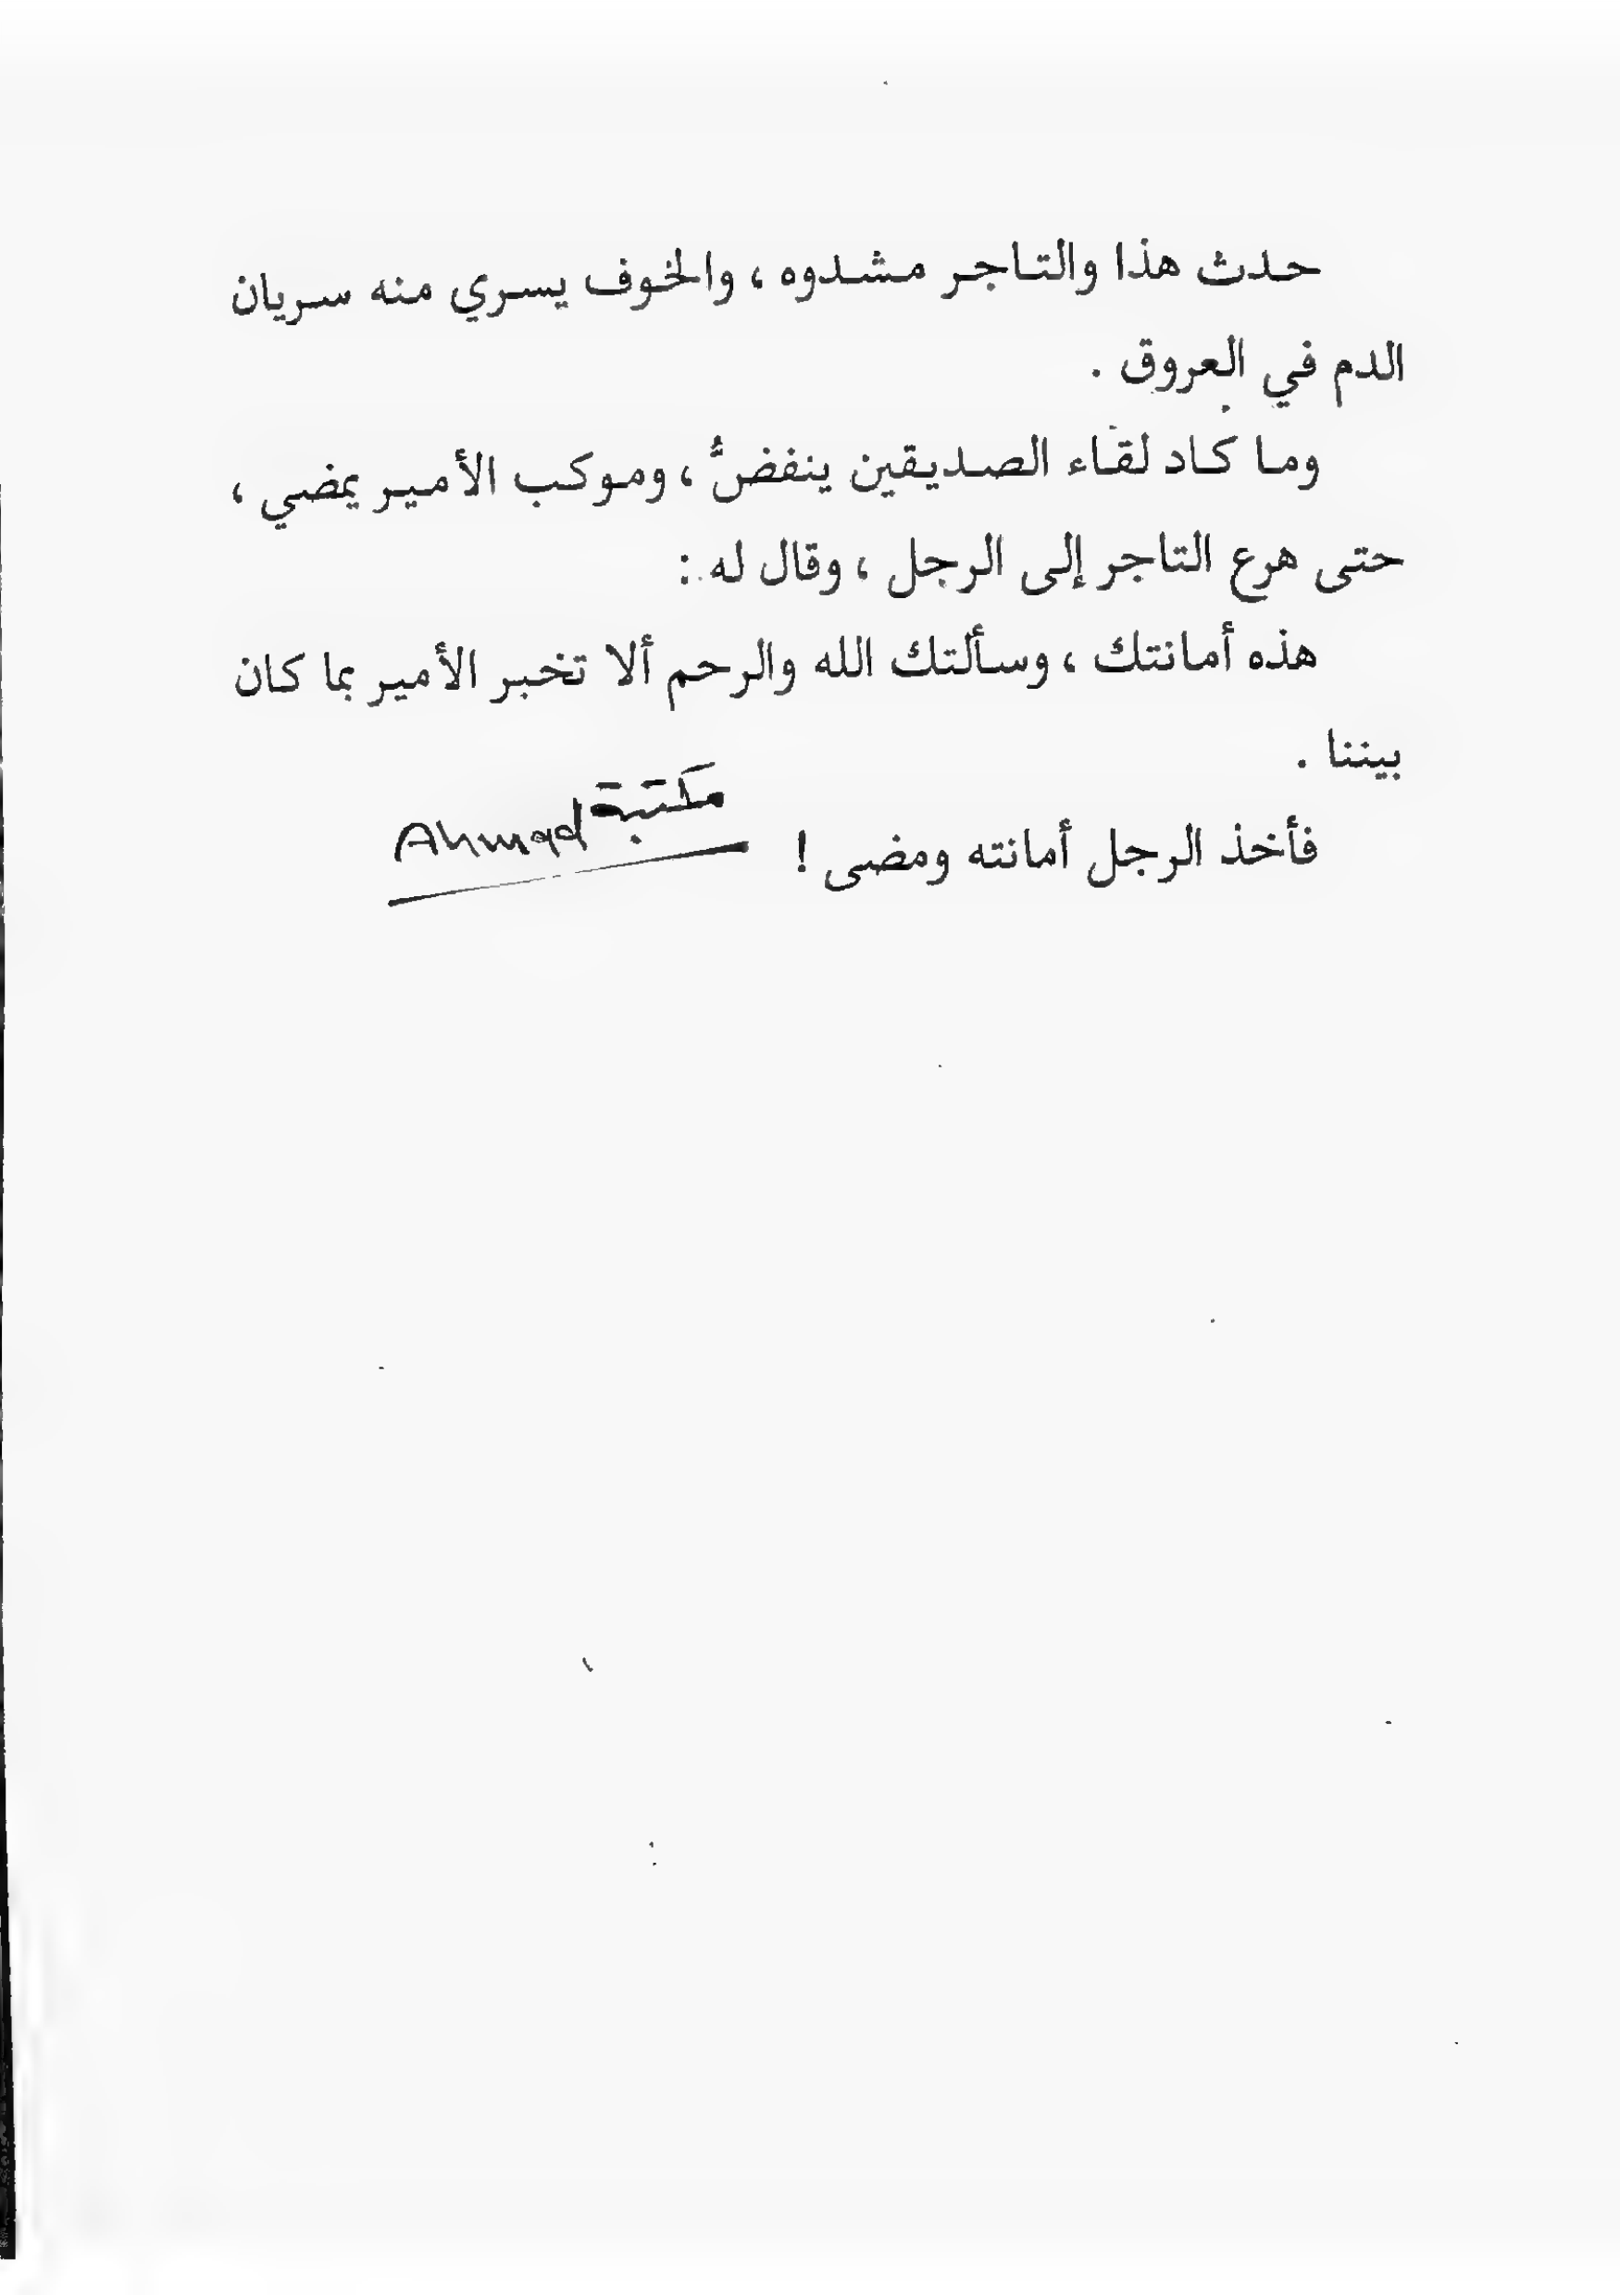 حدث هذا والتاجر مشدوه ، والخوف يسري منه سريان
الدم في العروق .
وما كاد لقاء الصديقين ينفضُّ ، وموكب الأمير يمضي ،
حتى هرع التاجر إلى الرجل ، وقال له :
هذه أمانتك ، وسألتك الله والرحم ألا تخبر الأمير بما كان
بيننا .
فأخذ الرجل أمانته ومضى !
مكتبة Ahmad